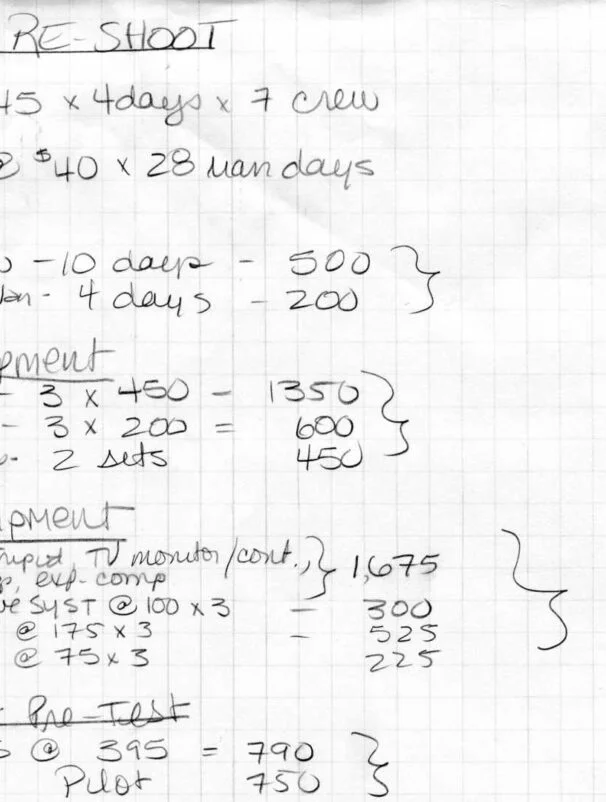 RE-SHOOT
45 x 4 days x 7 crew
@ $40 x 28 man days
- 10 days - 500
- 4 days - 200
pment
- 3 x 450 - 1350
- 3 x 200 = 600
- 2 sets 450
ipment
TV monitor/cont., 1,675
exp. comp
ve SYST @ 100 x 3 - 300
@ 175 x 3 - 525
@ 75 x 3 225
Pre-Test
S @ 395 = 790
Pilot 750